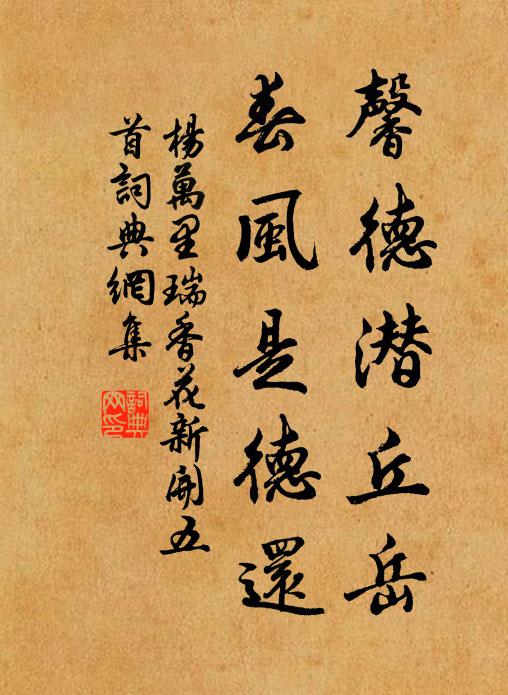 馨德潜丘岳
春風是德還
楊萬里瑞香花新開五
首詞典網集
詞典
网印